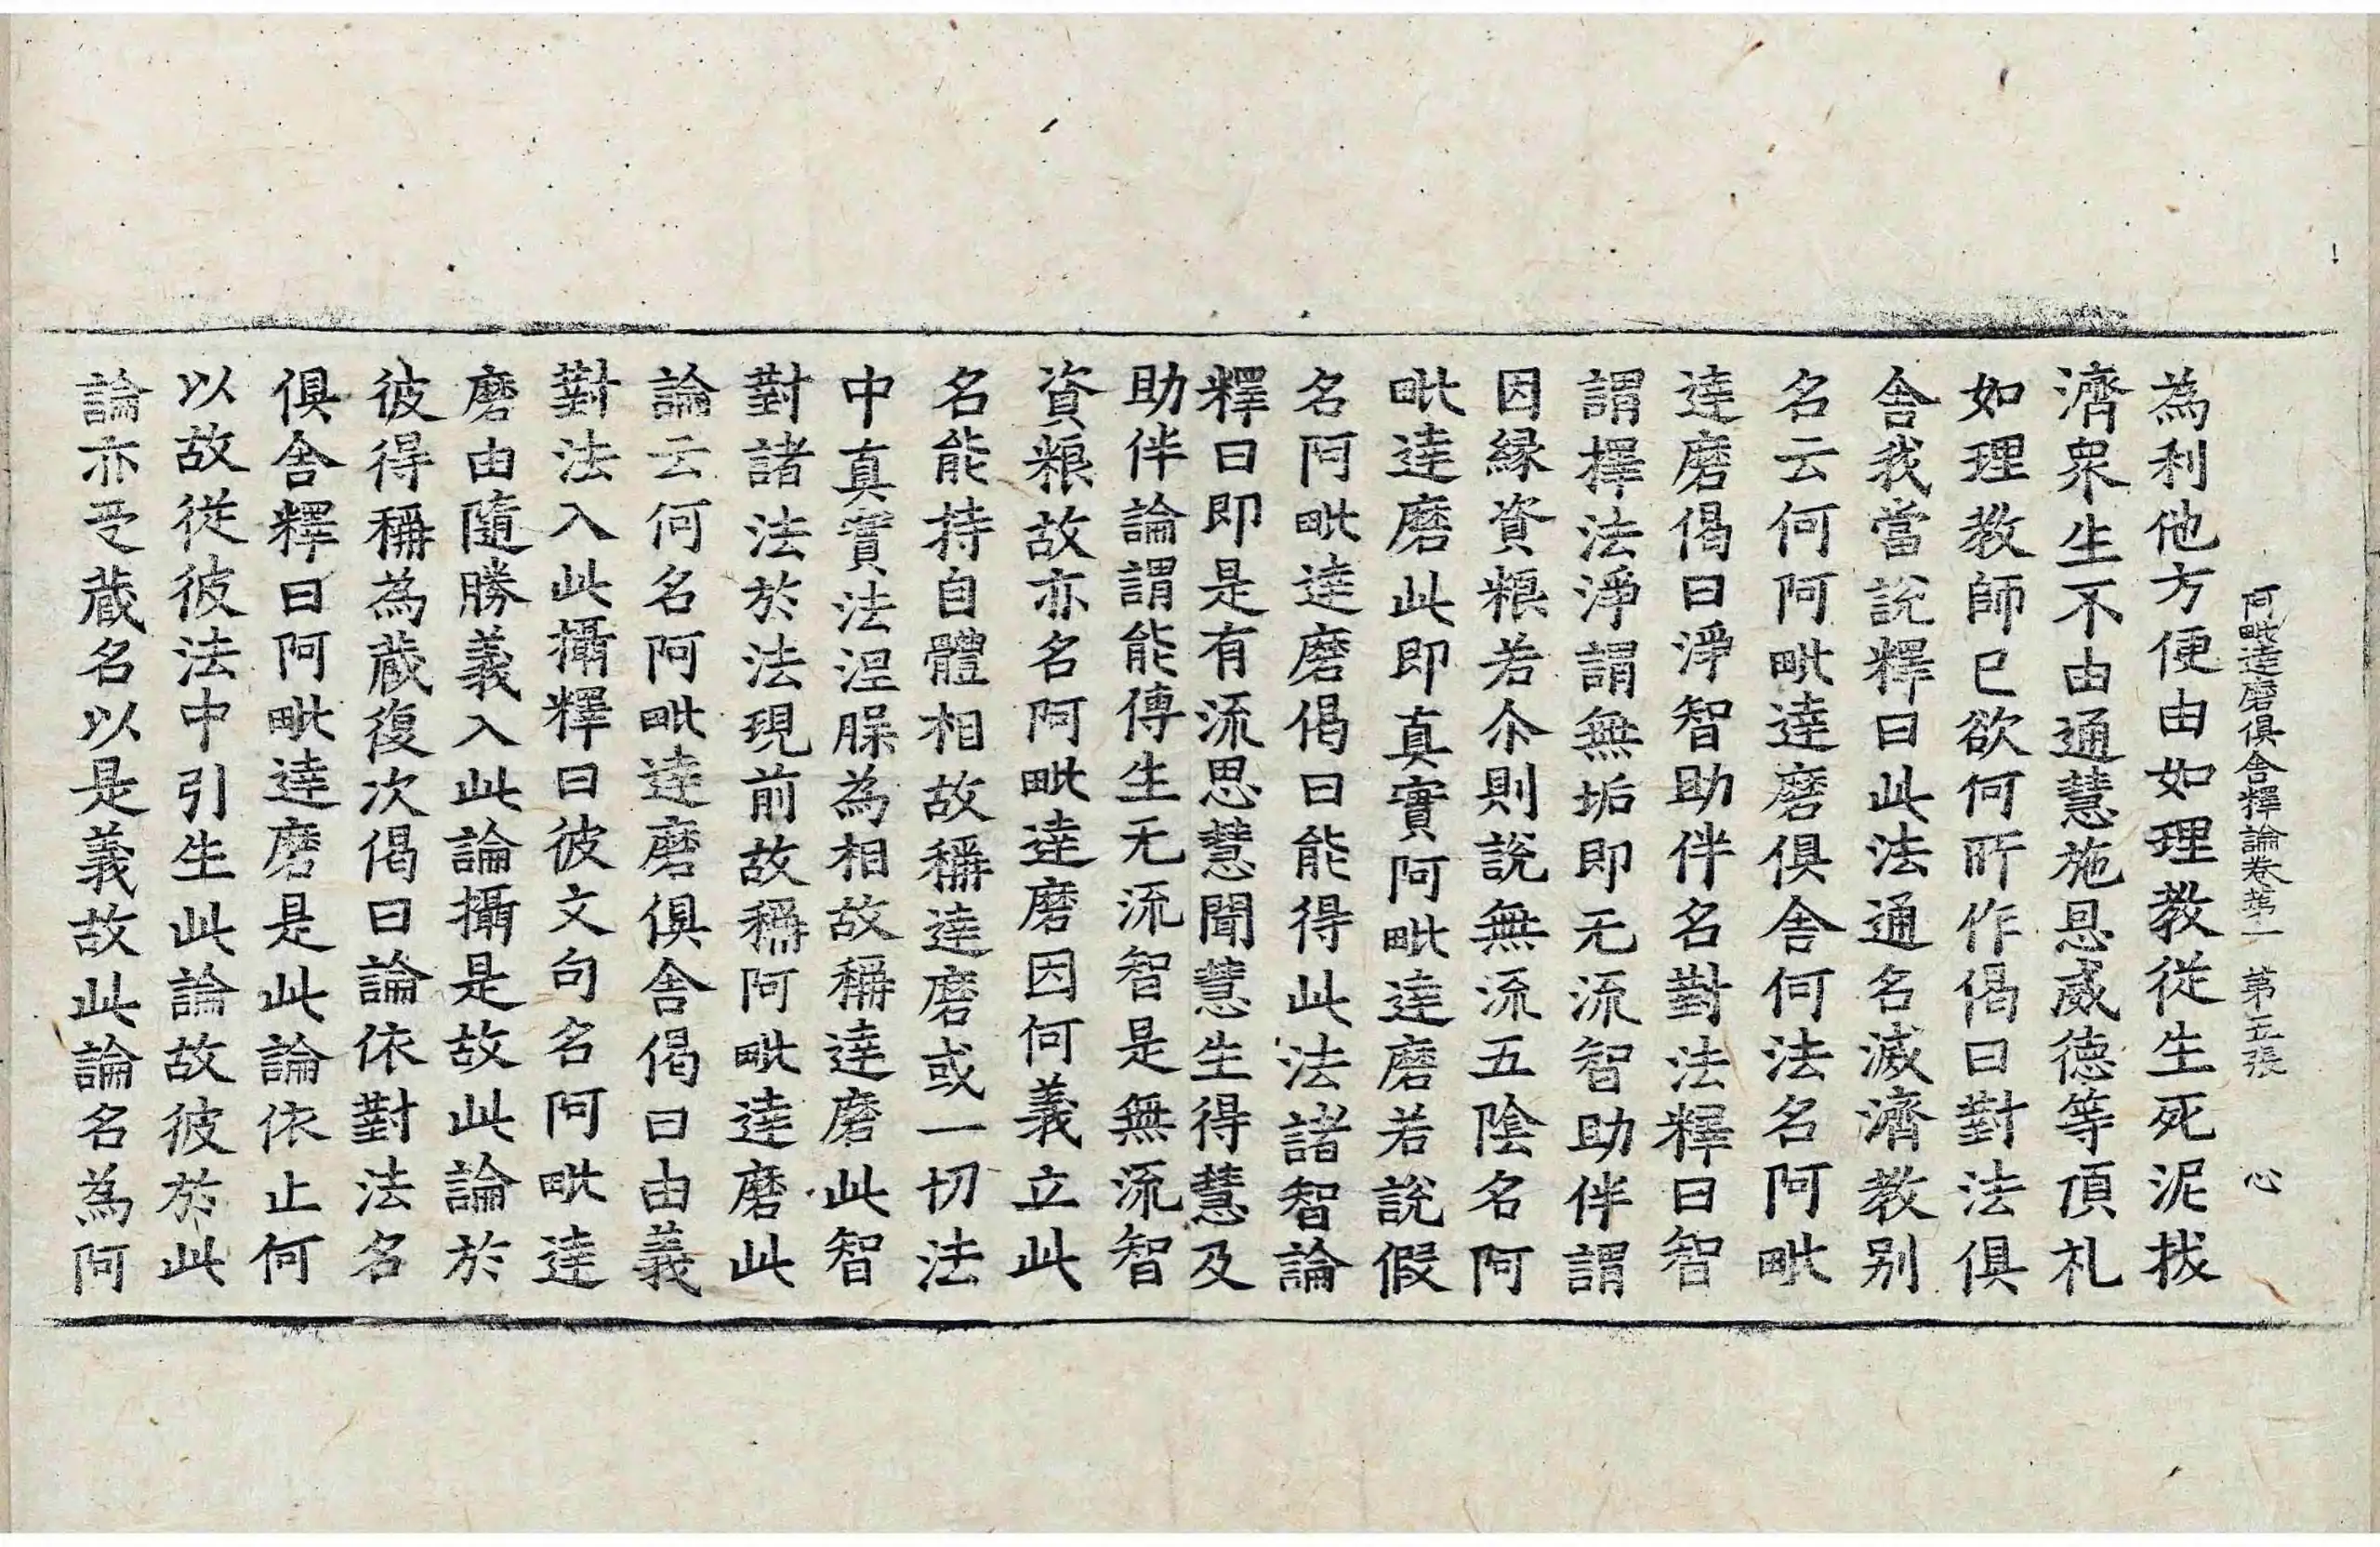 阿毗達磨俱舍釋論卷第一 第五張 心
為利他方便由如理教從生死泥拔
濟衆生不由通慧施恩威德等頂礼
如理教師已欲何所作偈曰對法俱
舍我當說釋曰此法通名滅濟教别
名云何阿毗達磨俱舍何法名阿毗
達磨偈曰淨智助伴名對法釋曰智
謂擇法淨謂無垢即无流智助伴謂
因緣資粮若尒則說無流五陰名阿
毗達磨此即真實阿毗達磨若說假
名阿毗達磨偈曰能得此法諸智論
釋曰即是有流思慧聞慧生得慧及
助伴論謂能傳生无流智是無流智
資粮故亦名阿毗達磨因何義立此
名能持自體相故稱達磨或一切法
中真實法涅槃為相故稱達磨此智
對諸法於法現前故稱阿毗達磨此
論云何名阿毗達磨俱舍偈曰由義
對法入此攝釋曰彼文句名阿毗達
磨由隨勝義入此論攝是故此論於
彼得稱為蔵復次偈曰論依對法名
俱舍釋曰阿毗達磨是此論依止何
以故從彼法中引生此論故彼於此
論亦受蔵名以是義故此論名為阿